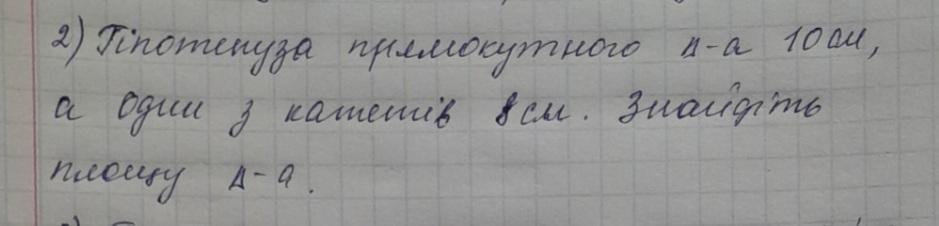 2) Гіпотенуза прямокутного Δ-а 10 см,
а один з катетів 8 см. Знайдіть
площу Δ-а.